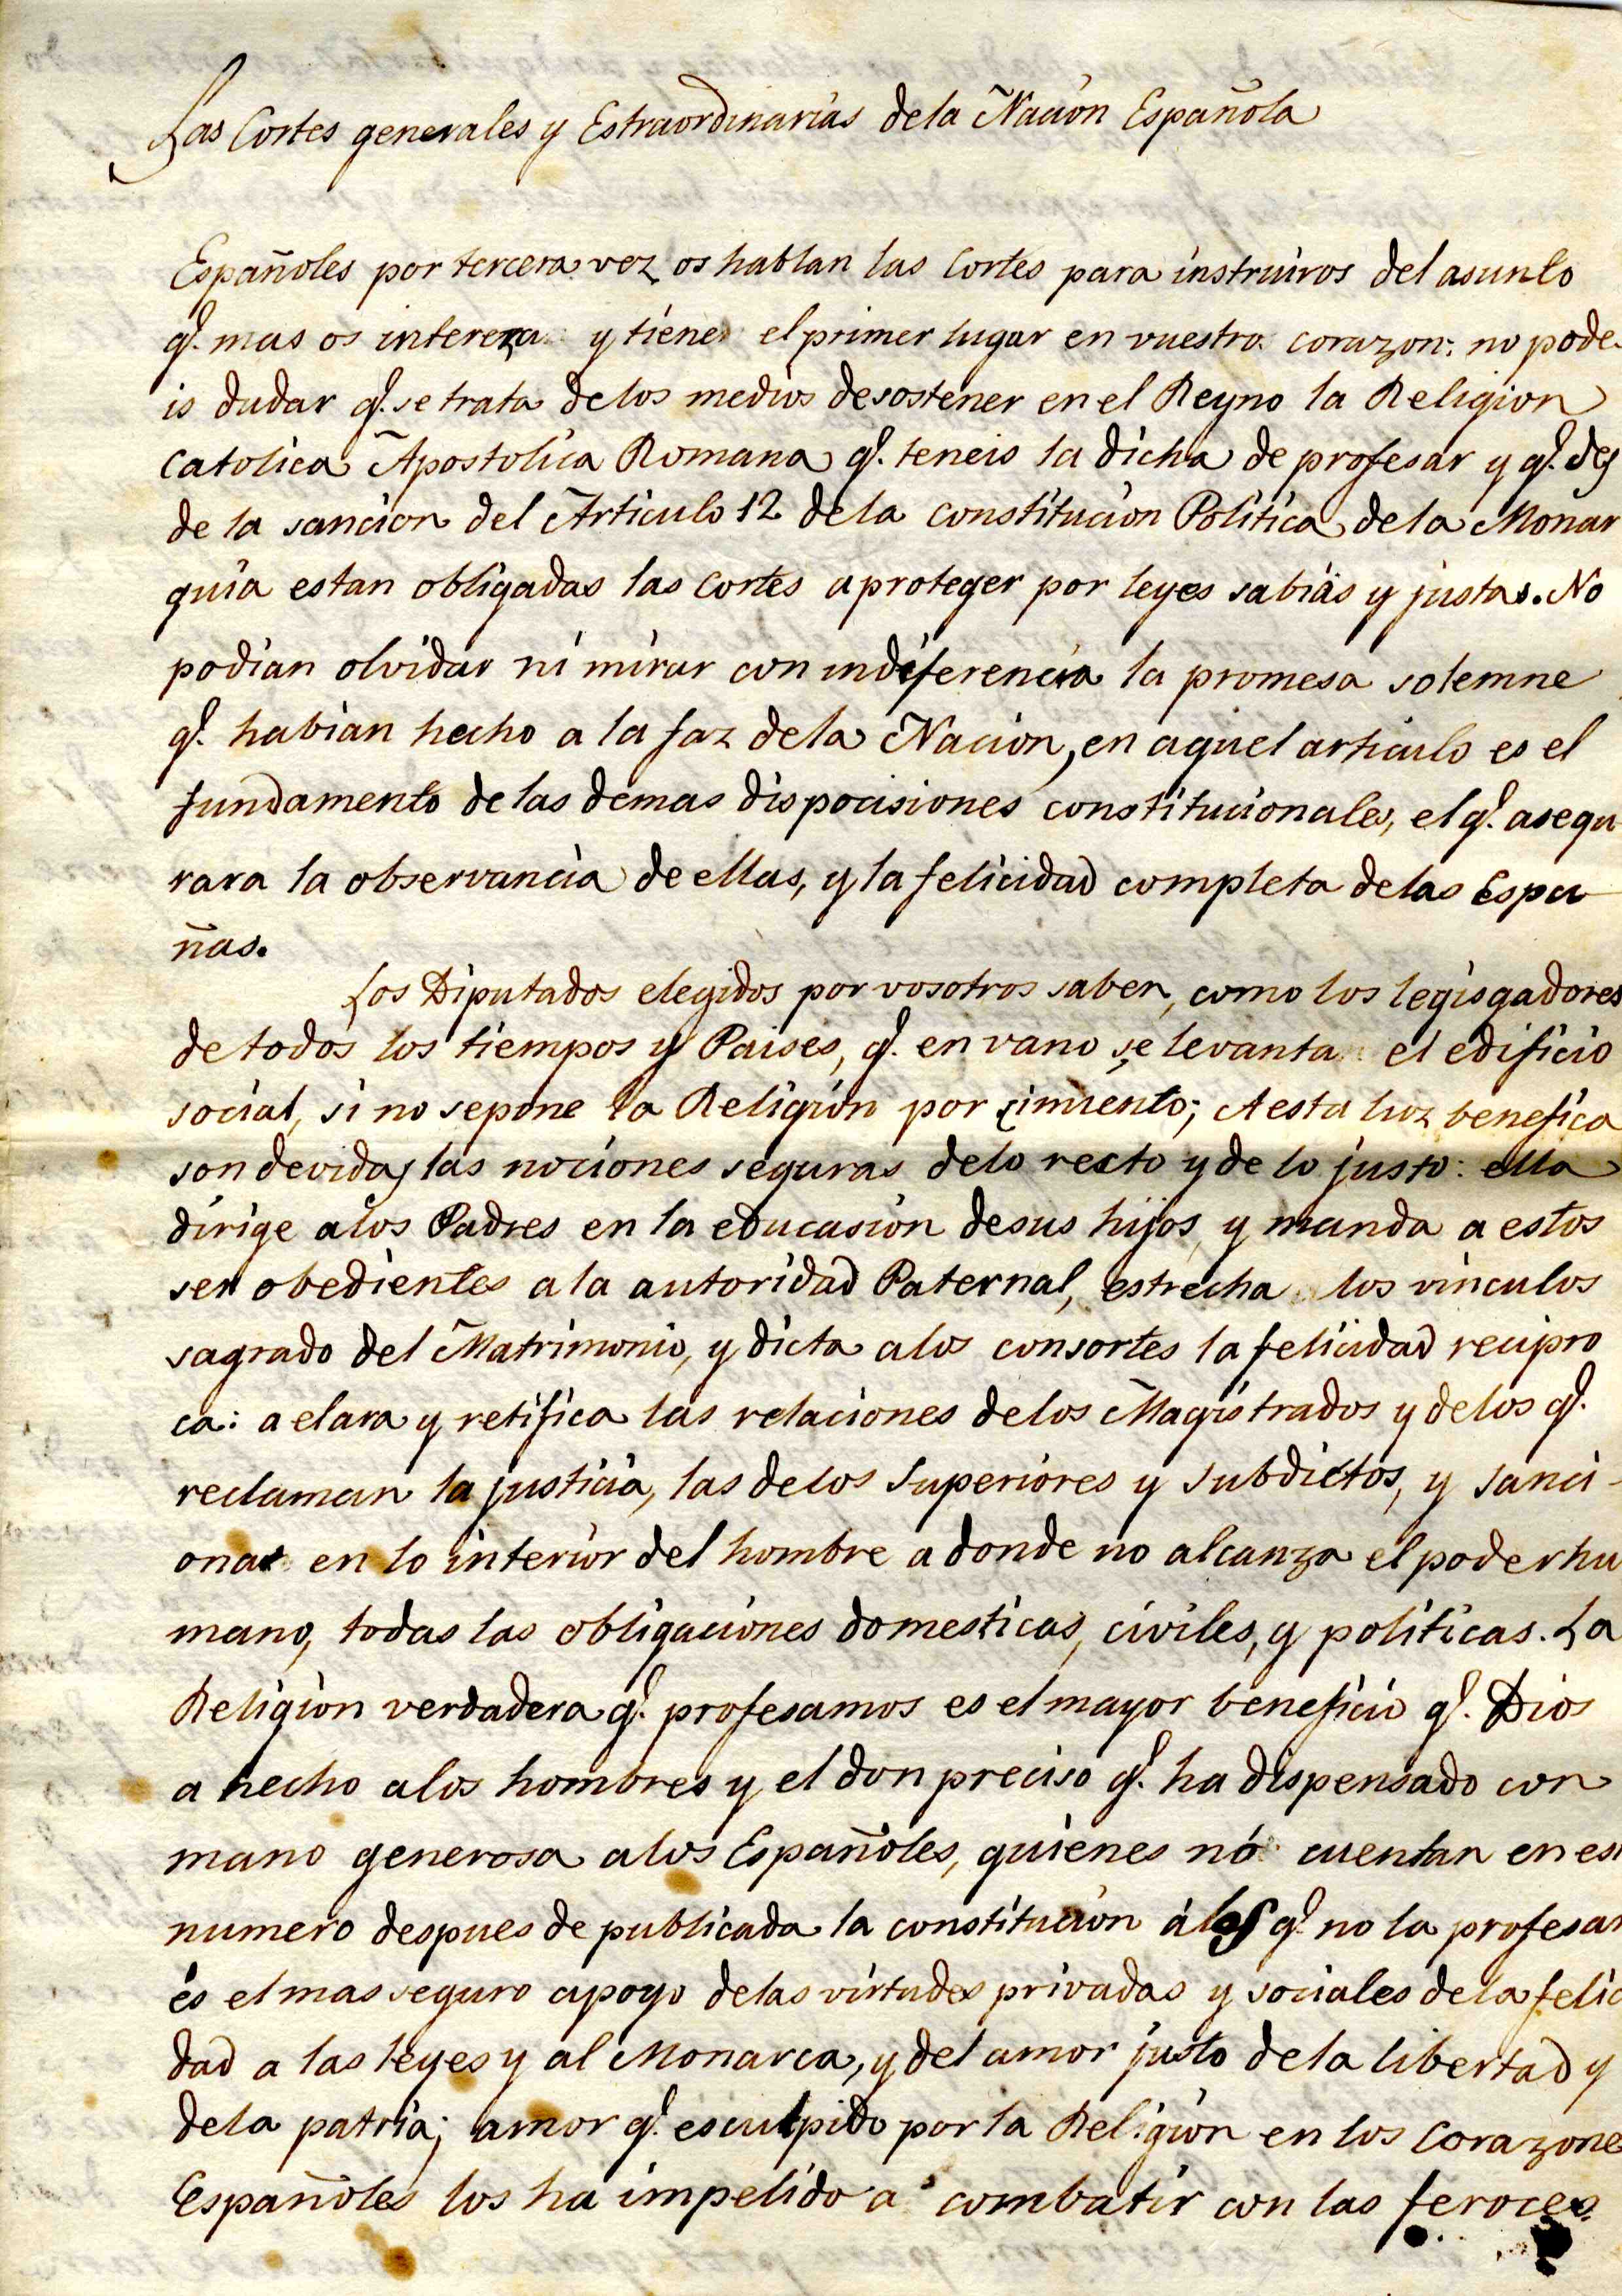 Las Cortes generales y Estraordinarias dela Nacion Española
Españoles por tercera vez os hablan las Cortes para instruiros del asunto
q.e mas os intereza y tiene el primer lugar en vuestro corazon: no pode-
is dudar q.e se trata delos medios desostener en el Reyno la Religion
catolica Apostolica Romana q.e teneis la dicha de profesar y q.e des
de la sancion del Articulo 12 dela constitucion Politica dela Monar
quia estan obligadas las Cortes aproteger por leyes sabias y justas. No
podian olvidar ni mirar con indiferencia la promesa solemne
q.e habian hecho a la faz dela Nacion, en aquel articulo es el
fundamento delas demas dispocisiones constitucionales, el q.e asegu
rara la observancia de ellas, y la felicidad completa delas Espa
ñas.
Los Diputados elegidos por vosotros saben, como los legisgadores
de todos los tiempos y Paises, q.e en vano se levanta el edificio
social, si no sepone la Religion por cimiento; A esta luz benefica
son devidas las nociones seguras delo recto y de lo justo: ella
dirige alos Padres en la educasion desus hijos, y manda a estos
ser obedientes ala autoridad Paternal, estrecha los vinculos
sagrado del Matrimonio, y dicta alos consortes la felicidad recipro
ca: aclara y retifica las relaciones delos Magistrados y delos q.e
reclaman la justicia, las delos Superiores y Subdictos, y sanci-
ona en lo interior del hombre a donde no alcanza el poder hu
mano, todas las obligaciones domesticas, civiles, y politicas. La
Religion verdadera q.e profesamos es el mayor beneficio q.e Dios
a hecho alos hombres y el don preciso q.e ha dispensado con
mano generosa alos Españoles, quienes nó cuentan en es
numero despues de publicada la constitucion á los q.e no la profesan
és el mas seguro apoyo delas virtudes privadas y sociales dela felic
dad a las leyes y al Monarca, y del amor justo dela libertad y
dela patria; amor q.e esculpido por la Religion en los Corazone
Españoles los ha impelido a combatir con las feroces